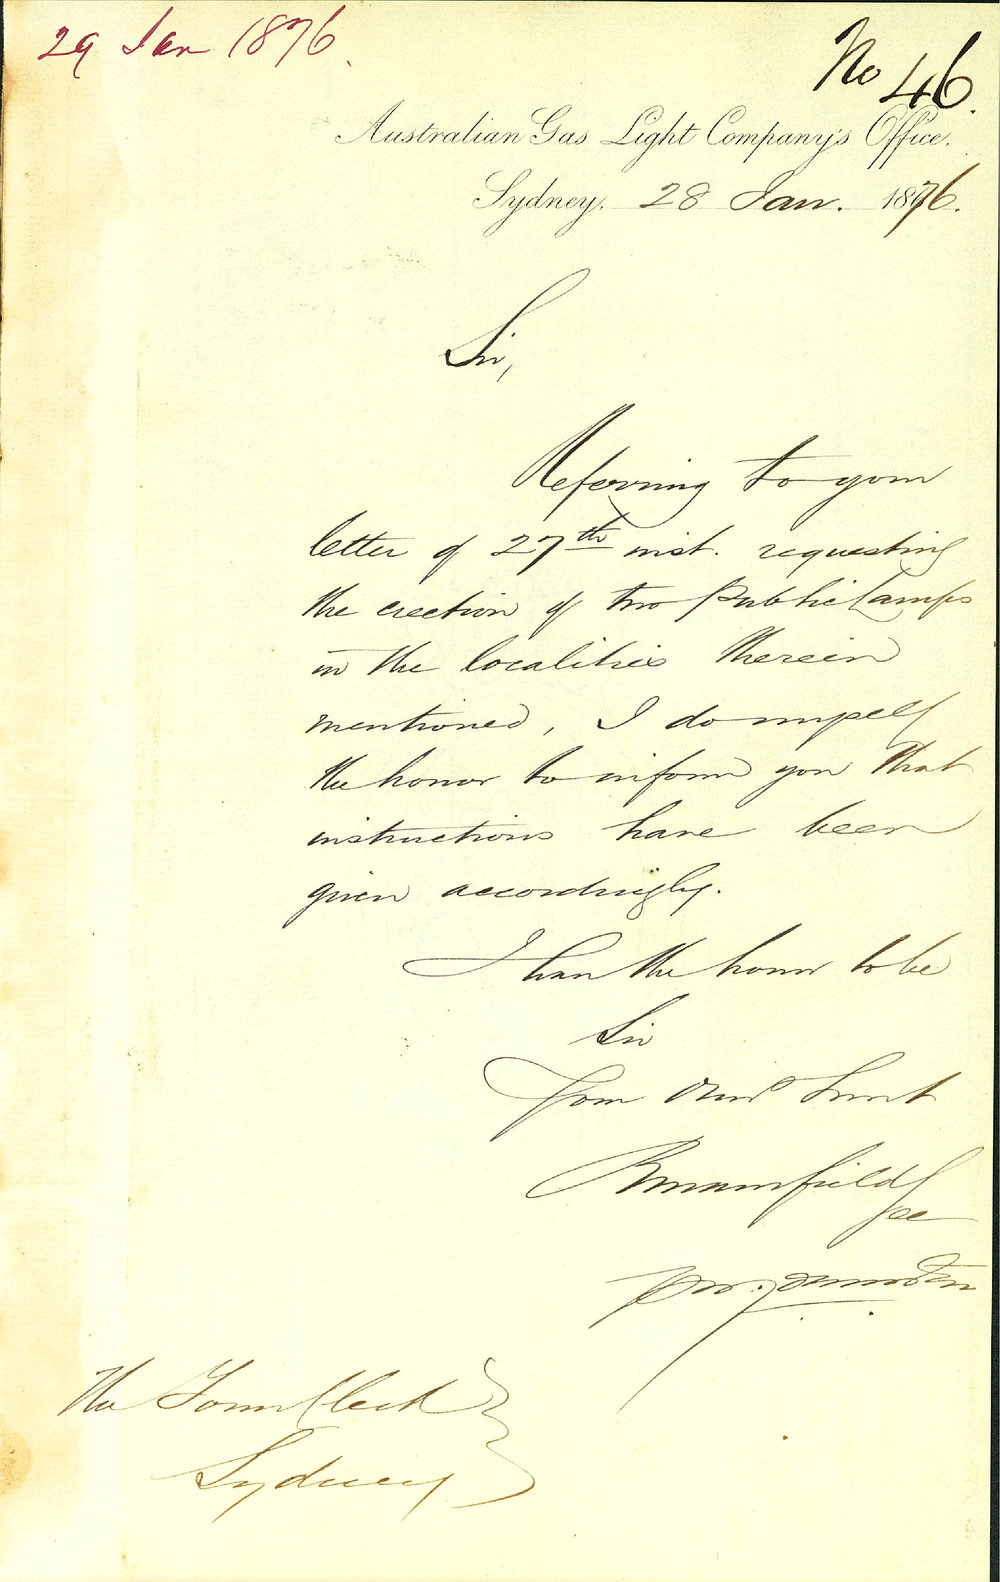 29 Jan 1876.
No 46.
Australian Gas Light Company's Office.
Sydney. 28 Jan. 1876.
Sir,
Referring to your
letter of 27th inst. requesting
the erection of two Public Lamps
in the localities therein
mentioned, I do myself
the honor to inform you that
instructions have been
given accordingly.
I have the honor to be
Sir
Your Obedt Servt
The Town Clerk
Sydney